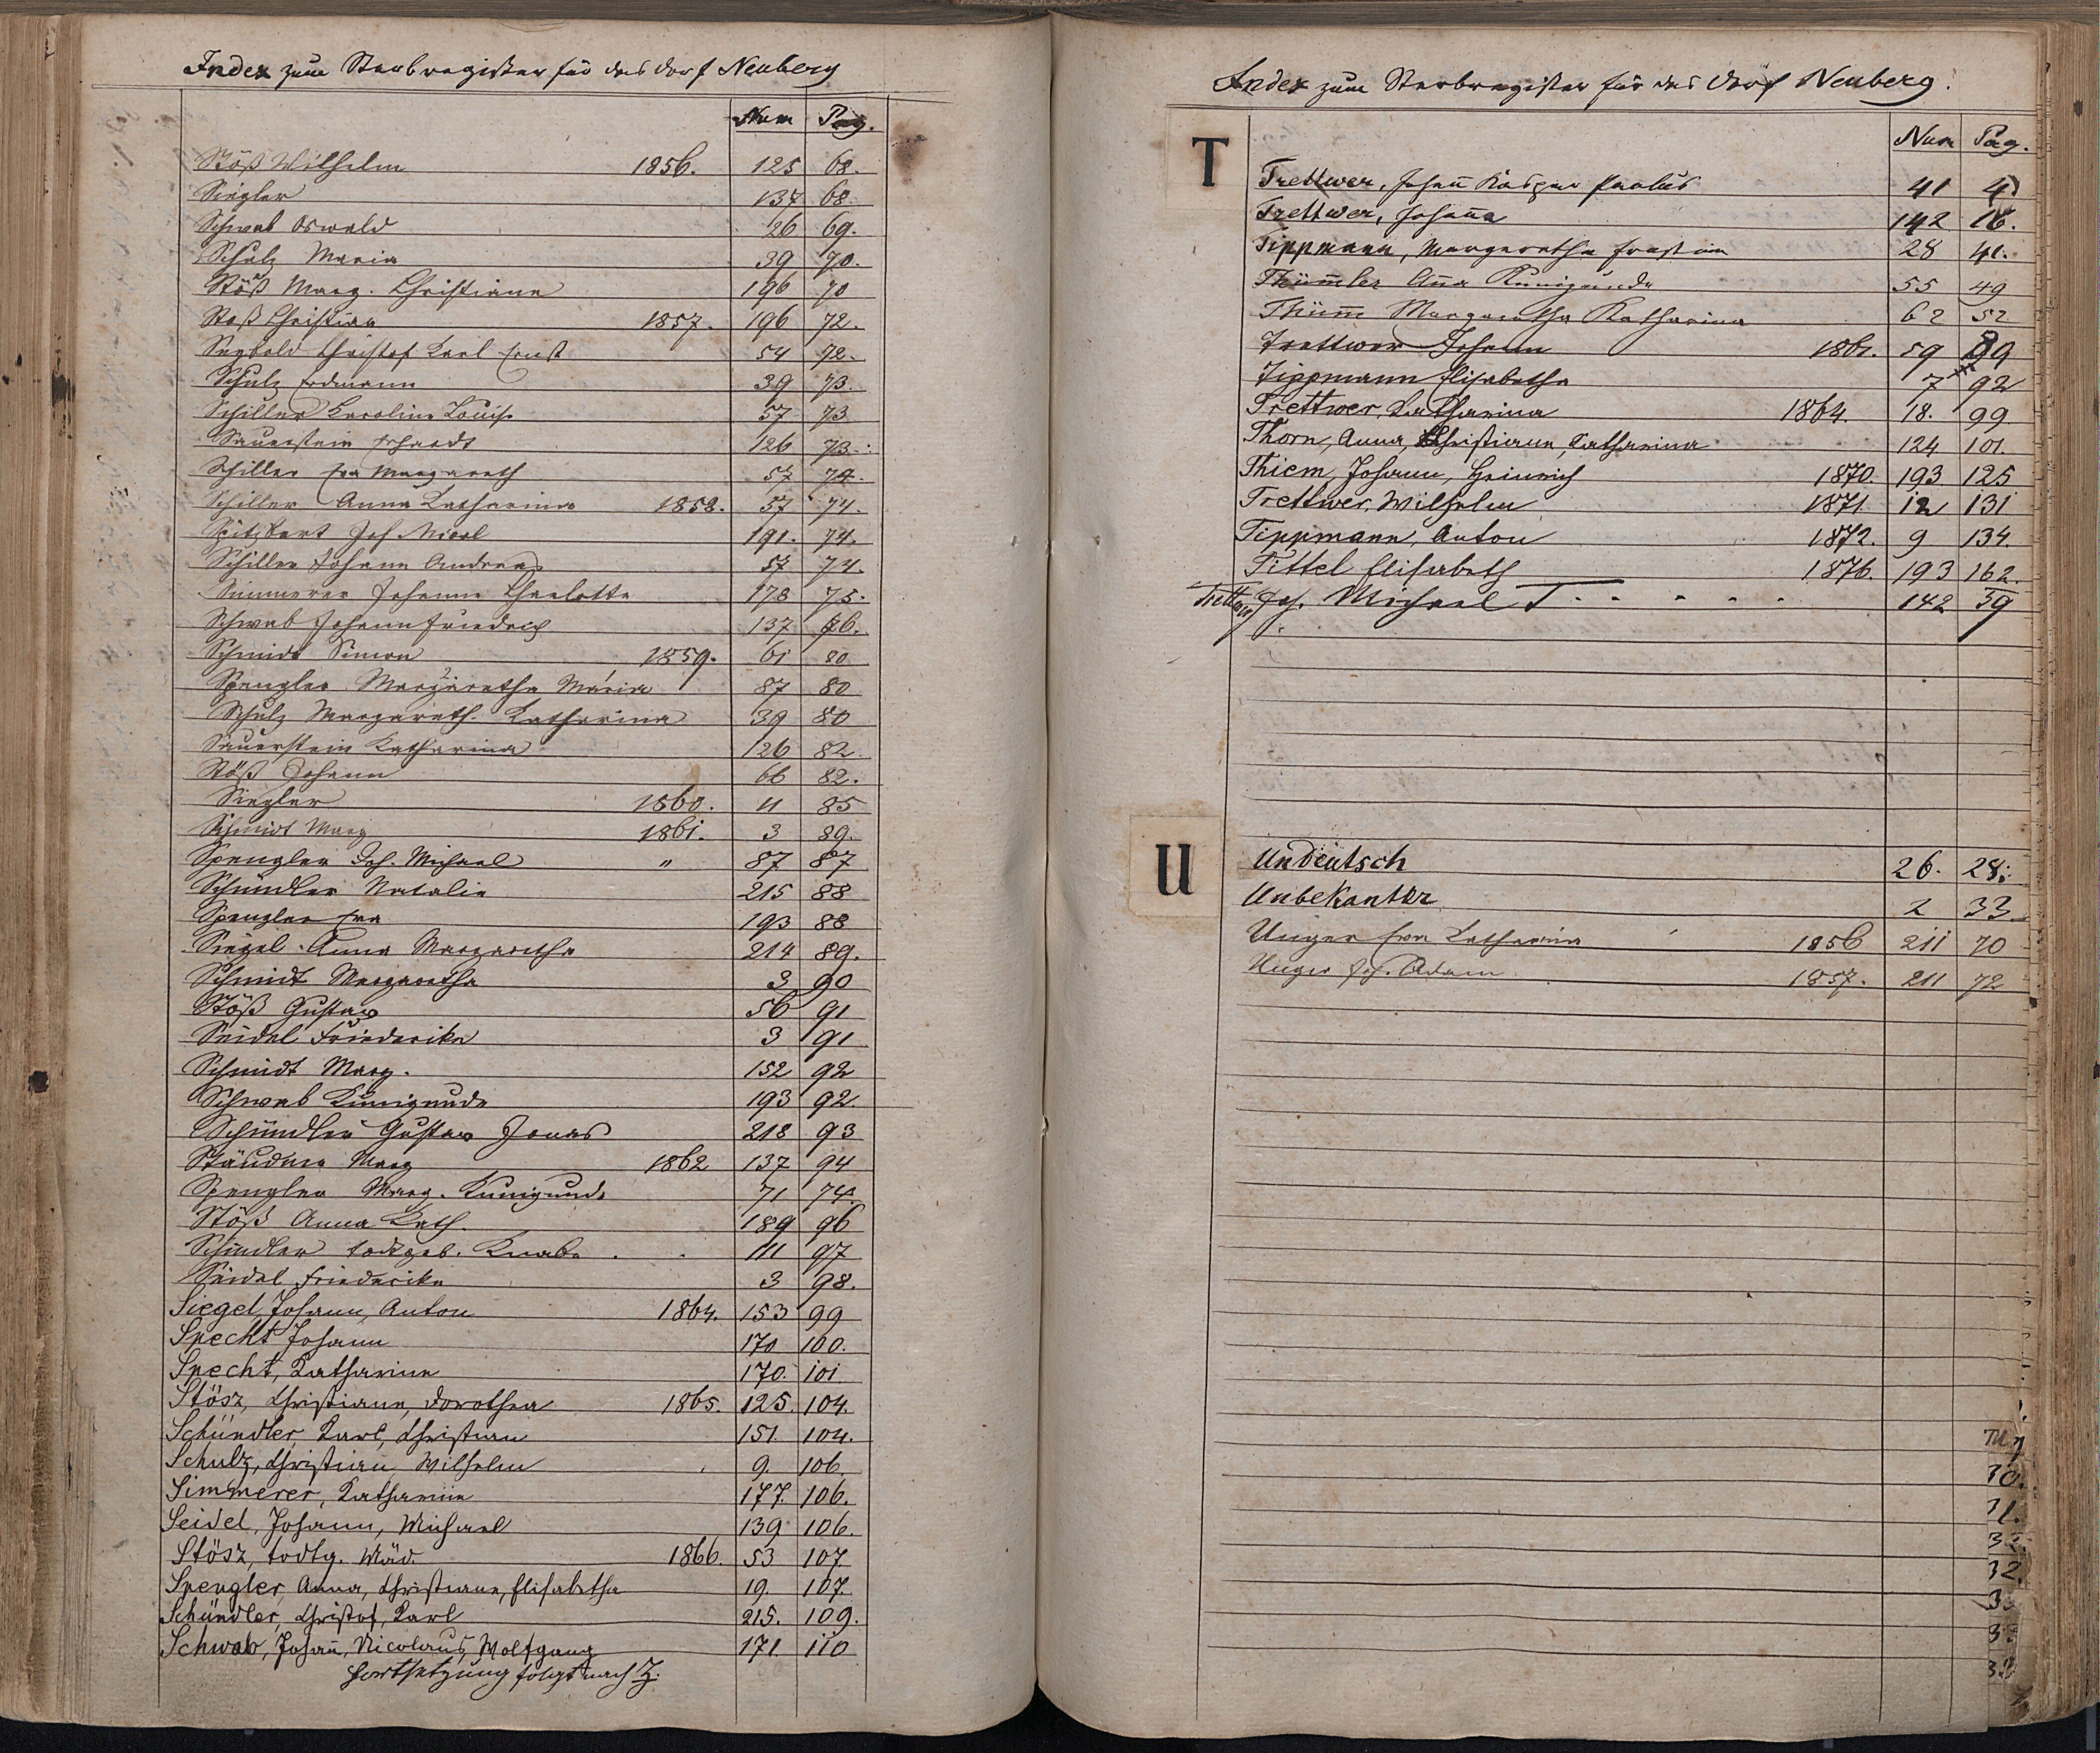 Index zum Sterbregister für das Dorf Neuberg
Num Pag.
Stöß Wilhelm 1856. 125 68.
Siegler 137 68.
Schwab Oswald 26 69.
Schulz Maria 39 70.
Stöß Marg. Christiana 196 70
Stoß Christian 1857. 196 72.
Christof Karl Ernst 54 72.
Schulz Erdmann 39 73.
Schiller Karolina Louise 57 73
Sauerstein Erhardt 126 73.
Schiller Eva Margareth 57 74.
Schiller Anna Katharina 1858. 57 74.
Joh. Nicol 191. 74.
Schiller Johann Andreas 57 74.
Simmerer Johanna Charlotte 178 75.
Schwab Johann Friedrich 137 76.
Schmidt Simon 1859. 61 80
Spengler Margaretha Maria 87 80
Schulz Margareth. Katharina 39 80
Sauerstein Katharina 126 82.
Stöß Johann 66 82.
Siegler 1860. 11 85
Schmidt Marg 1861. 3 89.
Spengler Joh. Michael " 87 87
Schündler Natalie 215 88
Spengler Eva 193 88
Siegel Anna Margaretha 214 89.
Schmidt Margaretha 3 90
Stöß Gustav 56 91
Seidel Friederike 3 91
Schmidt Marg. 152 92
Schwab Kunigunda 193 92.
Schündler Gustav Jonas 218 93
Städner Marg 1862 137 94
Spengler Marg. Kunigunde 71 74.
Stöß Anna Kath. 189 96
Schindler todtgeb. Knabe 111 97
Seidel Friederike 3 98.
Siegel, Johann, Anton 1864. 153 99
Specht Johann 170 100.
Specht, Katharina 170. 101.
Stösz, Christiana, Dorothea 1865. 125. 104.
Schündler, Karl, Christian 151. 104.
Schulz, Christian Wilhelm 9. 106.
Simmerer, Katharina 177. 106.
Seidel, Johann, Michael 139 106.
Stösz, todtg. Mäd. 1866. 53 107.
Spengler, Anna, Christiana, Elisabetha 19. 107.
Schündler, Christof, Karl 215. 109.
Schwab, Johañ, Nicolaus, Wolfgang 171. 110
Fortsetzung folgt nach Z.
Index zum Sterbregister für das Dorf Neuberg.
Num Pag.
T
Trettwer, Johañ Kaspar Paulus 41 4
Trettwer, Johaña 142 16.
Tippmann, Margaretha 28 41.
Thüm̃ler Aña Kunigunda 55 49
Thüm̃ Margaretha Katharina 62 52
Trettwer Johann 1861. 59 89
Tippmann Elisabetha 7 92
Trettwer, Katharina 1864. 18. 99
Thorn, Anna, Christiana, Katharina 124 101.
Thiem, Johann, Heinrich 1870. 193 125
Trettwer, Wilhelm 1871. 12 131
Tippmann, Anton 1872. 9 134.
Tittel Elisabeth 1876. 193 162.
Trettwer Joh. Michael T 142 39
U
Undeutsch 26. 28.
Unbekanter 2 33
Unger Eva Katharina 1856 211 70
Unger Joh. Adam 1857. 211 72
30.
32.